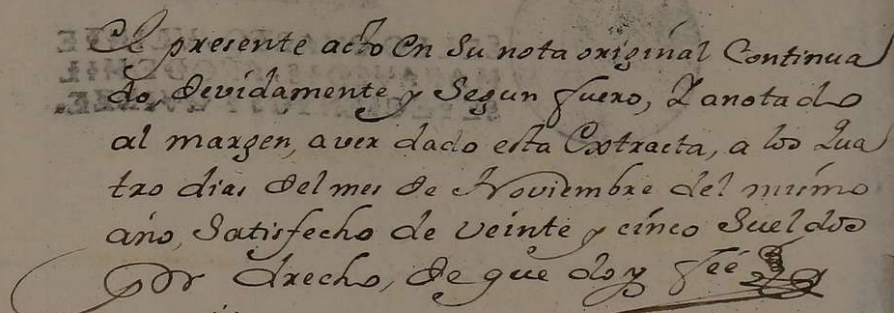 El presente acto en su nota original Continua
do, devidamente y Segun fuero, Y anotado
al margen, aver dado esta Extracta, a los Qua
tro dias del mes de Noviembre del mismo
año, Satisfecho de veinte y cinco Sueldos
por drecho, de que doy feé